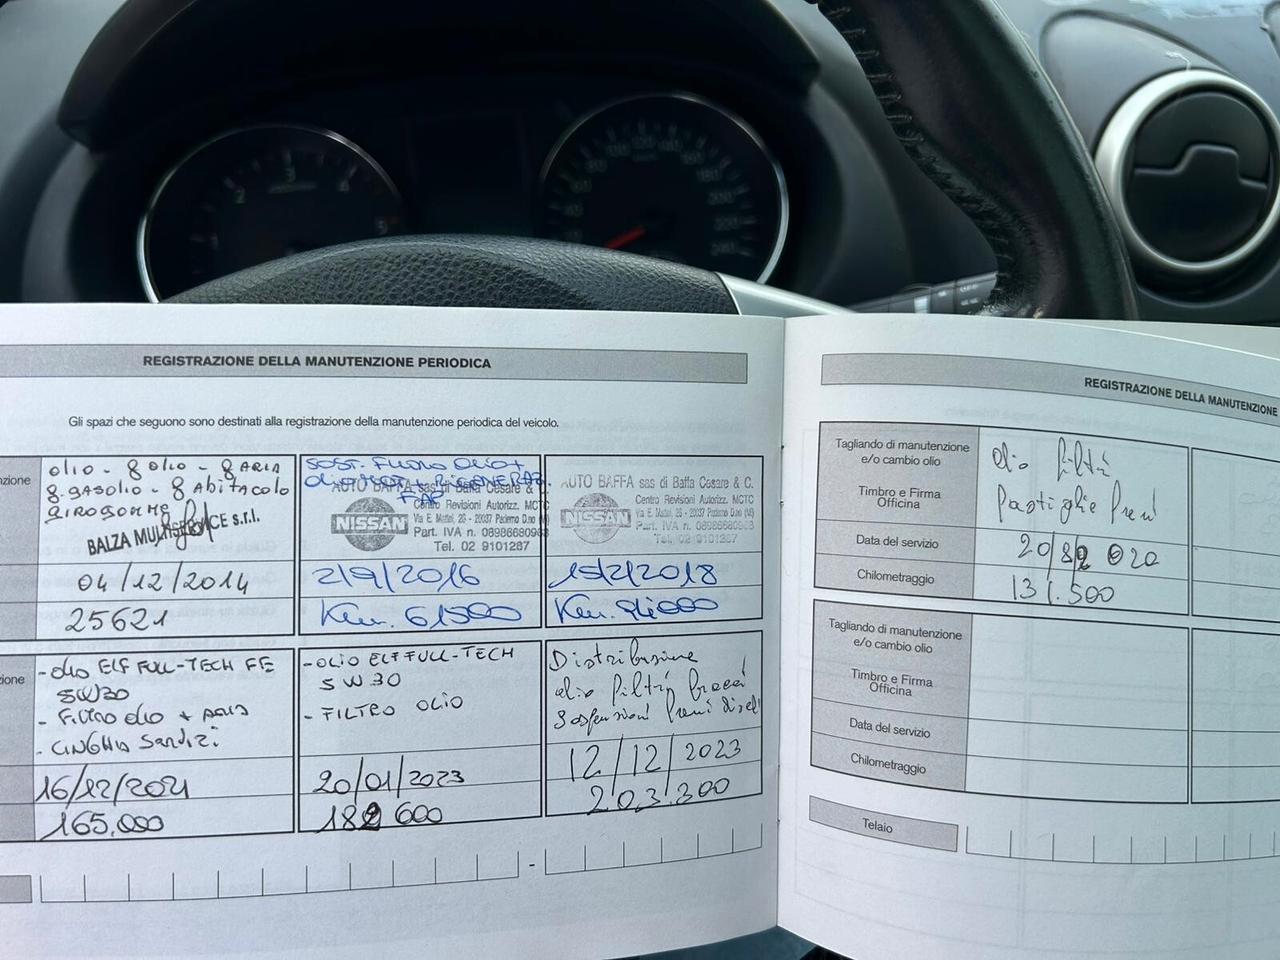 REGISTRAZIONE DELLA MANUTENZIONE PERIODICA
Gli spazi che seguono sono destinati alla registrazione della manutenzione periodica del veicolo.
nzione
olio - g olio - g ARIA
g.gasolio - g Abitacolo
BALZA
S.r.l.
04/12/2014
25621
SOST. FILTRO OLIO +
AUTO BAFFA sas di Baffa Cesare & C.
Centro Revisioni Autorizz. MCTC
NISSAN
Via E. Mattei, 26 - 20037 Paderno D.no (MI)
Part. IVA n.
Tel. 02 9101287
2/9/2016
Km. 61500
AUTO BAFFA sas di Baffa Cesare & C.
Centro Revisioni Autorizz. MCTC
NISSAN
Via E. Mattei, 26 - 20037 Paderno D.no (MI)
Part. IVA n. 08986680968
Tel. 02 9101287
15/2/2018
zione
- olio ELF FULL-TECH FE
5W30
- Filtro olio + ARIA
- CINGHIA Servizi
16/12/2021
165.000
- OLIO ELF FULL-TECH
5W30
- FILTRO OLIO
20/01/2023
182 600
Distribuzione
olio filtri bracci
sospensioni freni
12/12/2023
203.300
-
REGISTRAZIONE DELLA MANUTENZIONE
Tagliando di manutenzione
e/o cambio olio
Timbro e Firma
Officina
olio filtri
Pastiglie freni
Data del servizio
Chilometraggio
131.500
Tagliando di manutenzione
e/o cambio olio
Timbro e Firma
Officina
Data del servizio
Chilometraggio
Telaio